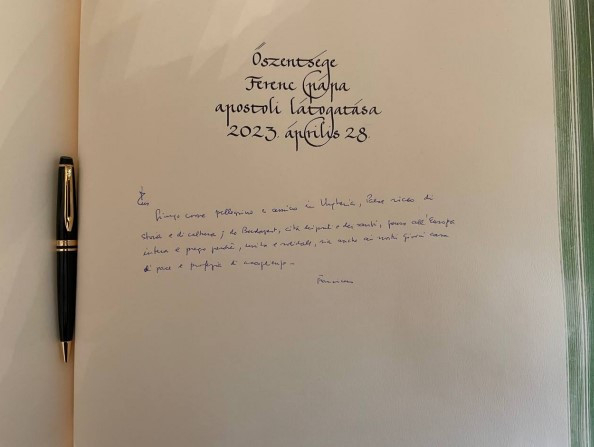 Őszentsége
Ferenc pápa
apostoli látogatása
2023. április 28.
Giungo come pellegrino e amico in Ungheria, Paese ricco di
storia e di cultura; da Budapest, città dei ponti e dei santi, penso all'Europa
intera e prego perché, unita e solidale, sia anche ai nostri giorni casa
di pace e profezia di accoglienza.
Francesco